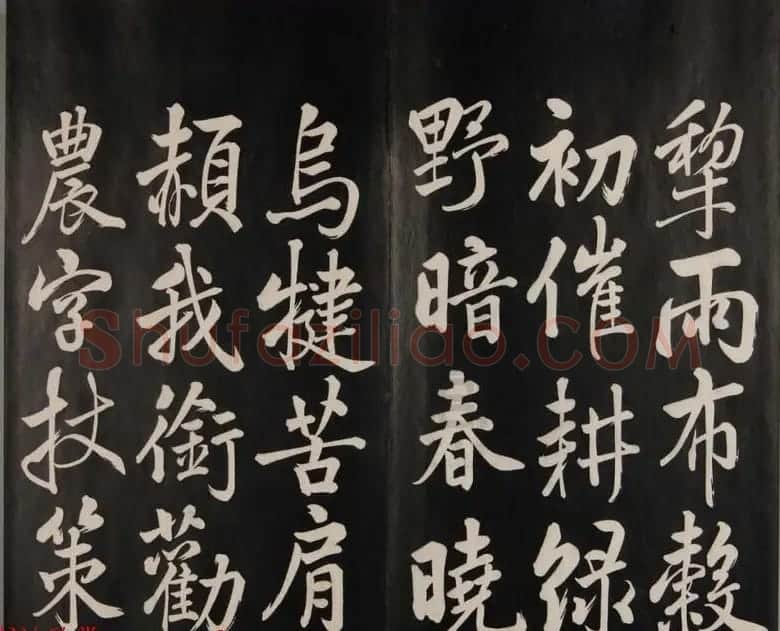 犂雨布穀
初催耕緑
野暗春曉
烏犍苦肩
頳我銜勸
農字杖策
Shufaziliao.COM